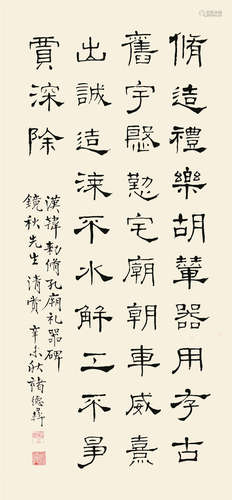 脩造禮樂胡輦器用存古
舊宇慇懃宅廟朝車威熹
出誠造漆不水解工不爭
賈深除
漢韓勑脩孔廟礼器碑
鏡秋先生清賞 辛未秋 褚德彝